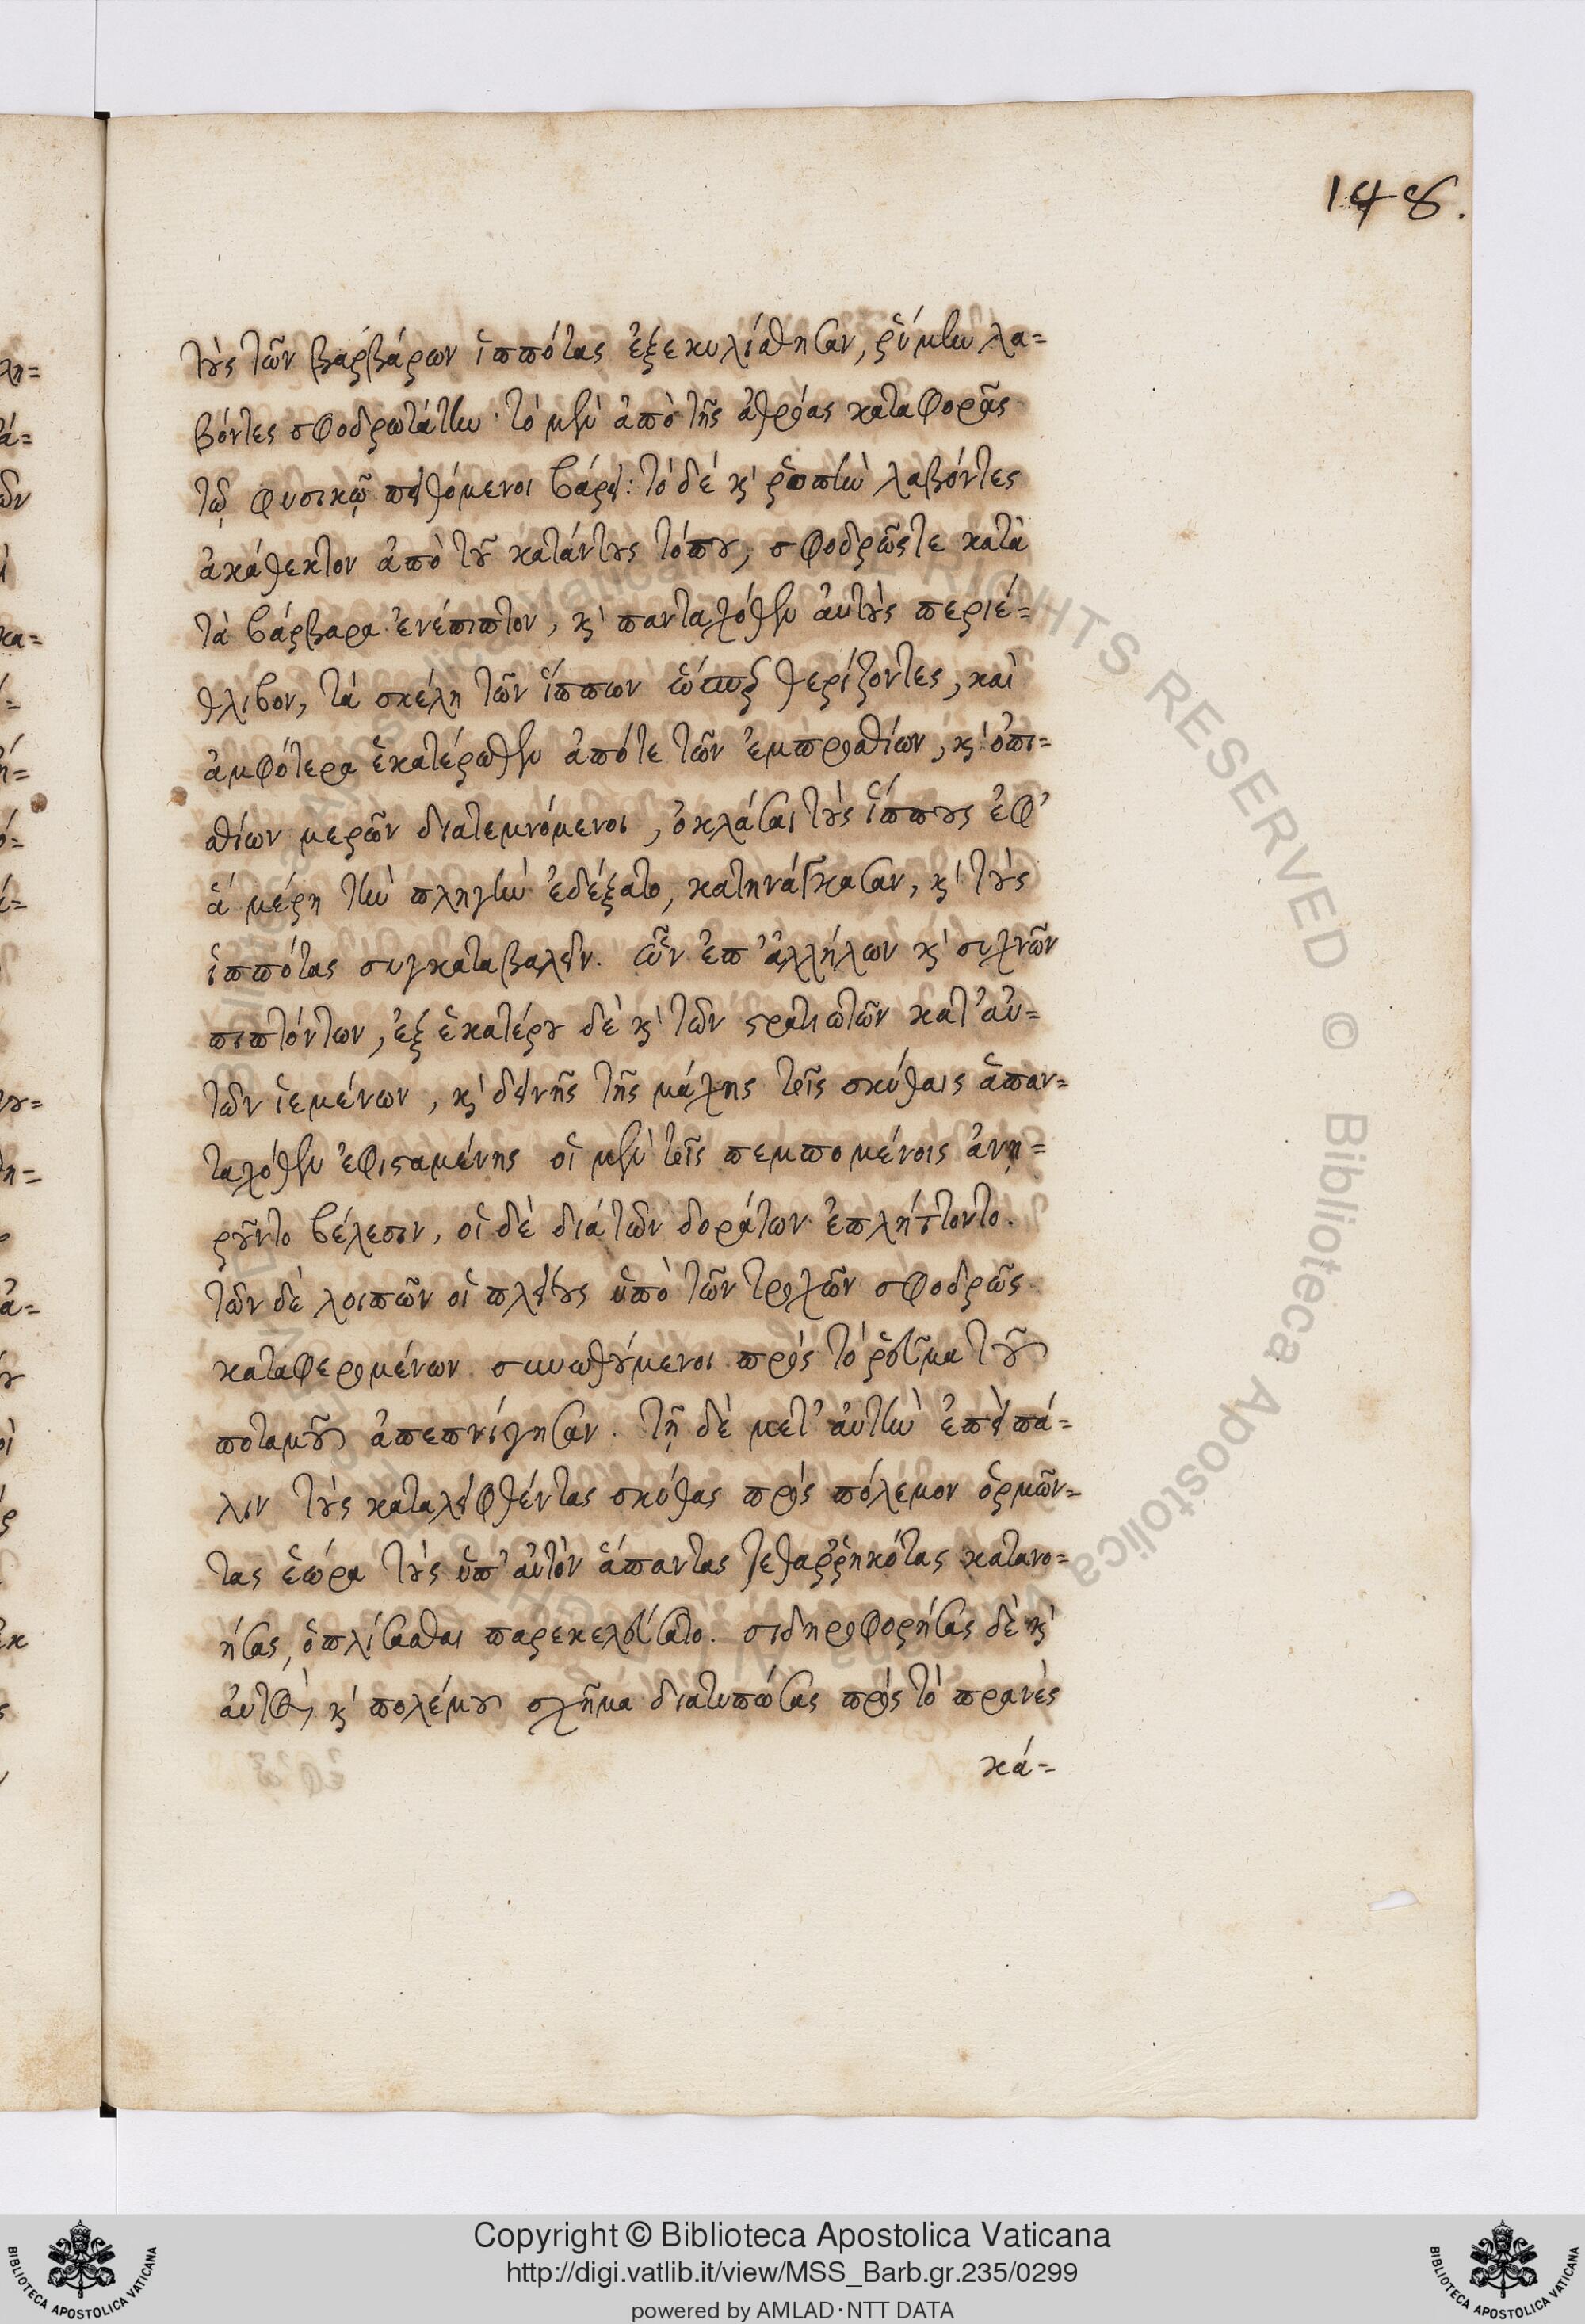 148.
τοὺς τῶν βαρβάρων ἱππότας ἐξεκυλίσθησαν, ῥύμην λα=
βόντες σφοδρωτάτην· τὸ μὲν ἀπὸ τῆς ἀθρόας καταφορᾶς
τῷ φυσικῷ πειθόμενοι βάρει: τὸ δὲ κ' ῥοπὴν λαβόντες
ἀκάθεκτον ἀπὸ τοῦ κατάντους τόπου, σφοδρῶς τε κατὰ
τὰ βάρβαρα ἐνέπιπτον, κ' πανταχόθεν αὐτοὺς περιέ=
θλιβον, τὰ σκέλη τῶν ἵππων ὥσπερ θερίζοντες, καὶ
ἀμφότερα ἑκατέρωθεν ἀπό τε τῶν ἐμπροσθίων, κ' ὀπι=
σθίων μερῶν διατεμνόμενοι, ὀκλάσαι τοὺς ἵππους ἐφ'
ἃ μέρη τὴν πληγὴν ἐδέξατο, κατηνάγκασαν, κ' τοὺς
ἱππότας συγκαταβαλεῖν. ὧν ἐπ' ἀλλήλων κ' συχνῶν
πιπτόντων, ἐξ ἑκατέρου δὲ κ' τῶν στρατιωτῶν κατ' αὐ=
τῶν ἱεμένων, κ' δεινῆς τῆς μάχης τοῖς σκύθαις ἁπαν=
ταχόθεν ἐφισταμένης οἱ μὲν τοῖς πεμπομένοις ἀνῃ=
ροῦντο βέλεσιν, οἱ δὲ διὰ τῶν δοράτων ἐπλήττοντο.
τῶν δὲ λοιπῶν οἱ πλείους ὑπὸ τῶν τροχῶν σφοδρῶς
καταφερομένων συνωθούμενοι πρὸς τὸ ῥεῦμα τοῦ
ποταμοῦ ἀπεπνίγησαν. τῇ δὲ μετ' αὐτὴν ἐπεὶ πά=
λιν τοὺς καταλειφθέντας σκύθας πρὸς πόλεμον ὁρμῶν=
τας ἑώρα τοὺς ὑπ' αὐτὸν ἅπαντας τεθαῤῥηκότας κατανο=
ήσας, ὁπλίσασθαι παρεκελεύσατο. σιδηροφορήσας δὲ κ'
αὐτὸς κ' πολέμου σχῆμα διατυπώσας πρὸς τὸ πρανὲς
κά=
Copyright © Biblioteca Apostolica Vaticana
http://digi.vatlib.it/view/MSS_Barb.gr.235/0299
powered by AMLAD·NTT DATA